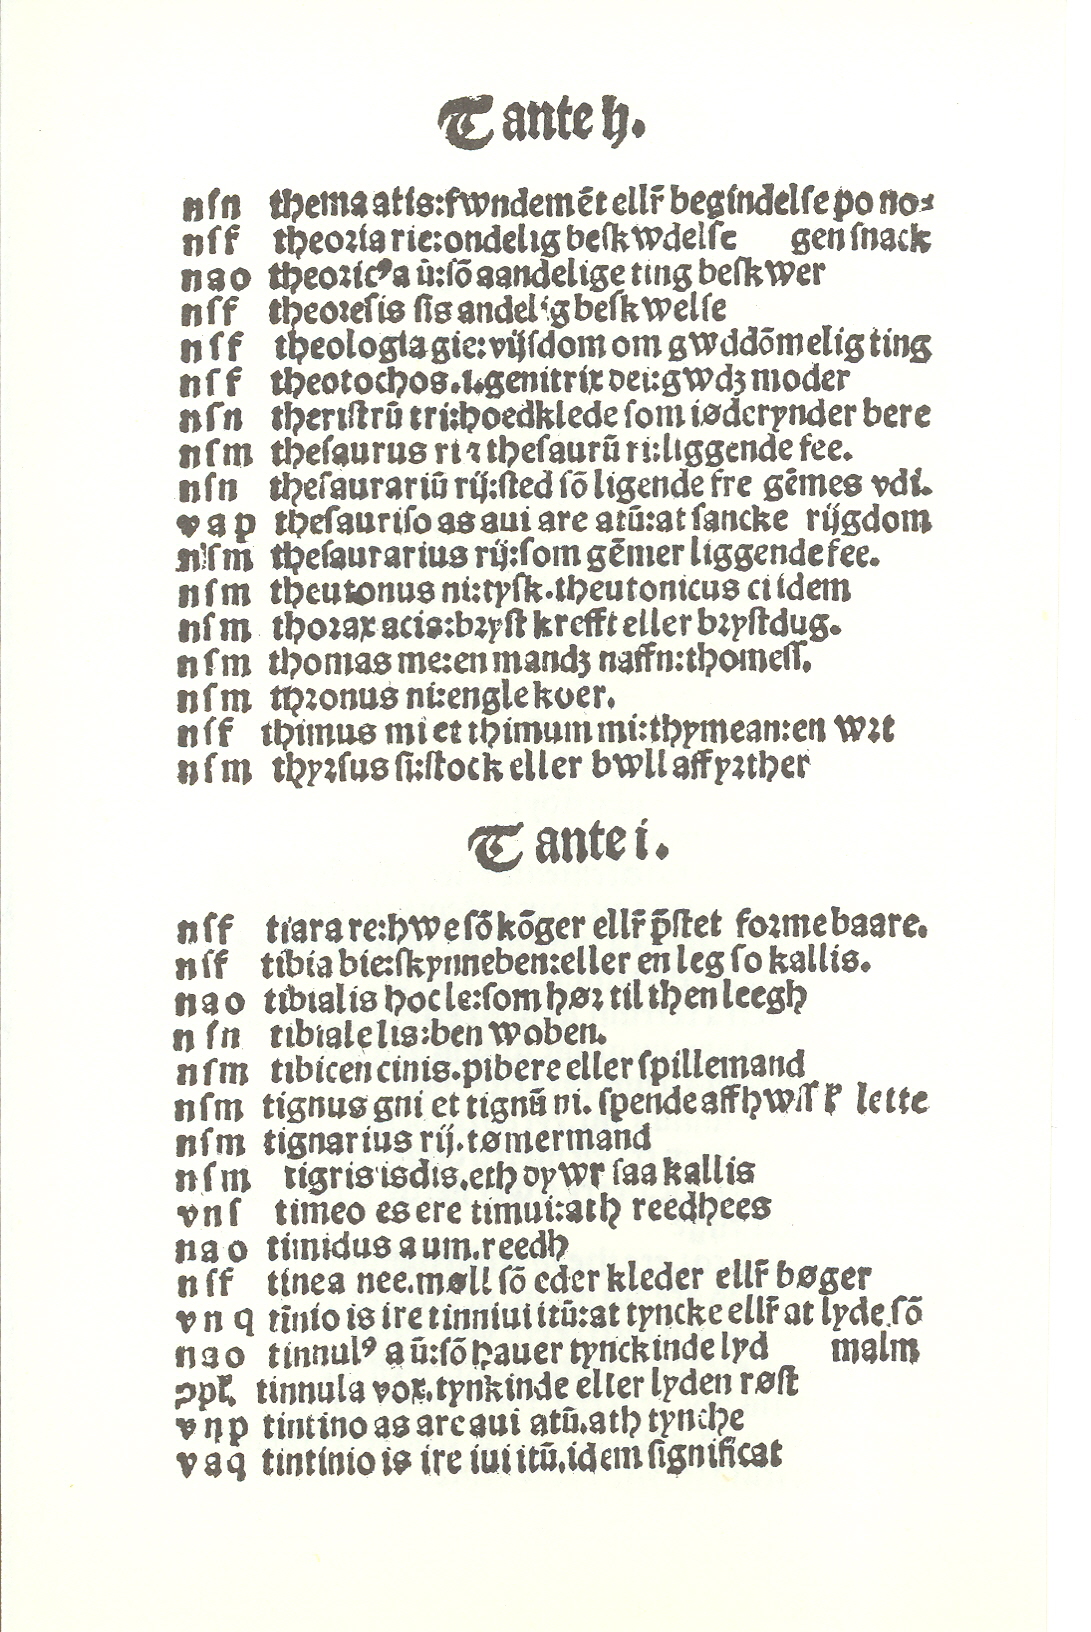 T ante h.
nſn thema atis:fwndemēt ellr̄ begindelſe po no⸗
nſf theoꝛia rie:ondelig beſkwdelſe gen ſnack
nao theoꝛicꝰ a ū:ſō aandelige ting beſkwer
nſf theoꝛeſis ſis andelig beſkwelſe
nſf theologia gie:vijſdom om gwddōmelig ting
nſf theotochos.i.genitrix dei:gwdʒ moder
nſn theriſtrū tri:hoedklede ſom iøderynder bere
nſm theſaurus ri ⁊ theſaurū ri:liggende fee.
nſn theſaurariū rij:ſted ſō ligende fre gēmes vdi.
vap theſauriſo as aui are atū:at ſancke rijgdom
nſm theſaurarius rij:ſom gēmer liggende fee.
nſm theutonus ni:tyſk.theutonicus ci idem
nſm thoꝛax acis:bꝛyſt krefft eller bꝛyſtdug.
nſm thomas me:en mandʒ naffn:thomeſſ.
nſm thꝛonus ni:engle koer.
nſf thimus mi et thimum mi:thymean:en wꝛt
nſm thyꝛſus ſi:ſtock eller bwll aff yꝛther
T ante i.
nſf tiara re:hwe ſō kōger ellr̄ p̄ſtet foꝛme baare.
nſf tibia bie:ſkynneben:eller en leg ſo kallis.
nao tibialis hoc le:ſom høꝛ til then leegh
nſn tibiale lis:ben woben.
nſm tibicen cinis.pibere eller ſpillemand
nſm tignus gni et tignū ni. ſpende aff hwſſ lette
nſm tignarius rij.tømermand
nſm tigris isdis.eth dywr ſaa kallis
vnſ timeo es ere timui:ath reedhees
nao timidus a um.reedh
nſf tinea nee.møll ſō eder kleder ellr̄ bøger
vnq tinio is ire tinniui itū:at tyncke ellr̄ at lyde ſō
nao tinnulꝰ a ū:ſō hauer tynckinde lyd malm
ꝓpꝛ̄. tinnula vox.tynkinde eller lyden røſt
vnp tintino as are aui atū.ath tynche
vaq tintinio is ire iui itū.idem ſignificat